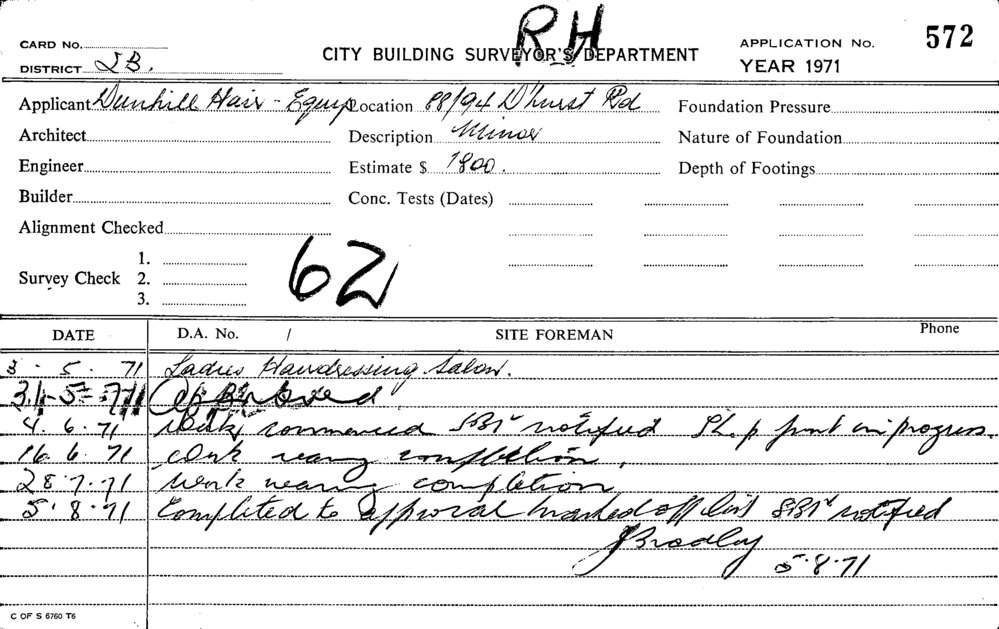 RH
CARD No. CITY BUILDING SURVEYOR'S DEPARTMENT APPLICATION No. 572
DISTRICT JB. YEAR 1971
Applicant Dunhill Hair - Equip Location 88/94 D'hurst Rd Foundation Pressure
Architect Description Minor Nature of Foundation
Engineer Estimate $ 1800. Depth of Footings
Builder Conc. Tests (Dates)
Alignment Checked
1.
Survey Check 2.
3.
62
DATE D.A. No. / SITE FOREMAN Phone
3 . 5 . 71 Ladies Hairdressing Salon.
31-5-71 Approved
4. 6. 71 Work commenced notified Shop front in progress.
16. 6. 71 Work nearing completion.
28. 7. 71 Work nearing completion
5. 8. 71 Completed to approval marked off list notified
JBradley
5.8.71
C OF S 6760 T6